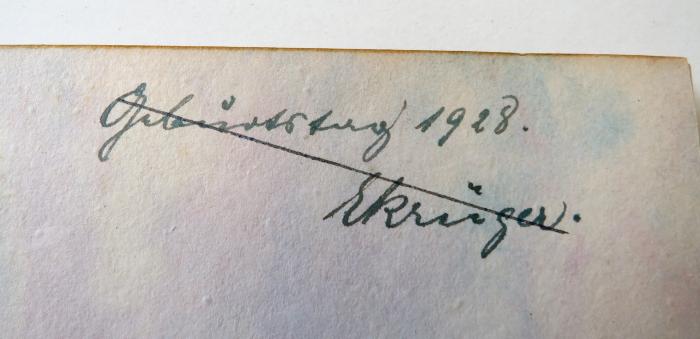 Geburtstag 1928.
EKrüger.